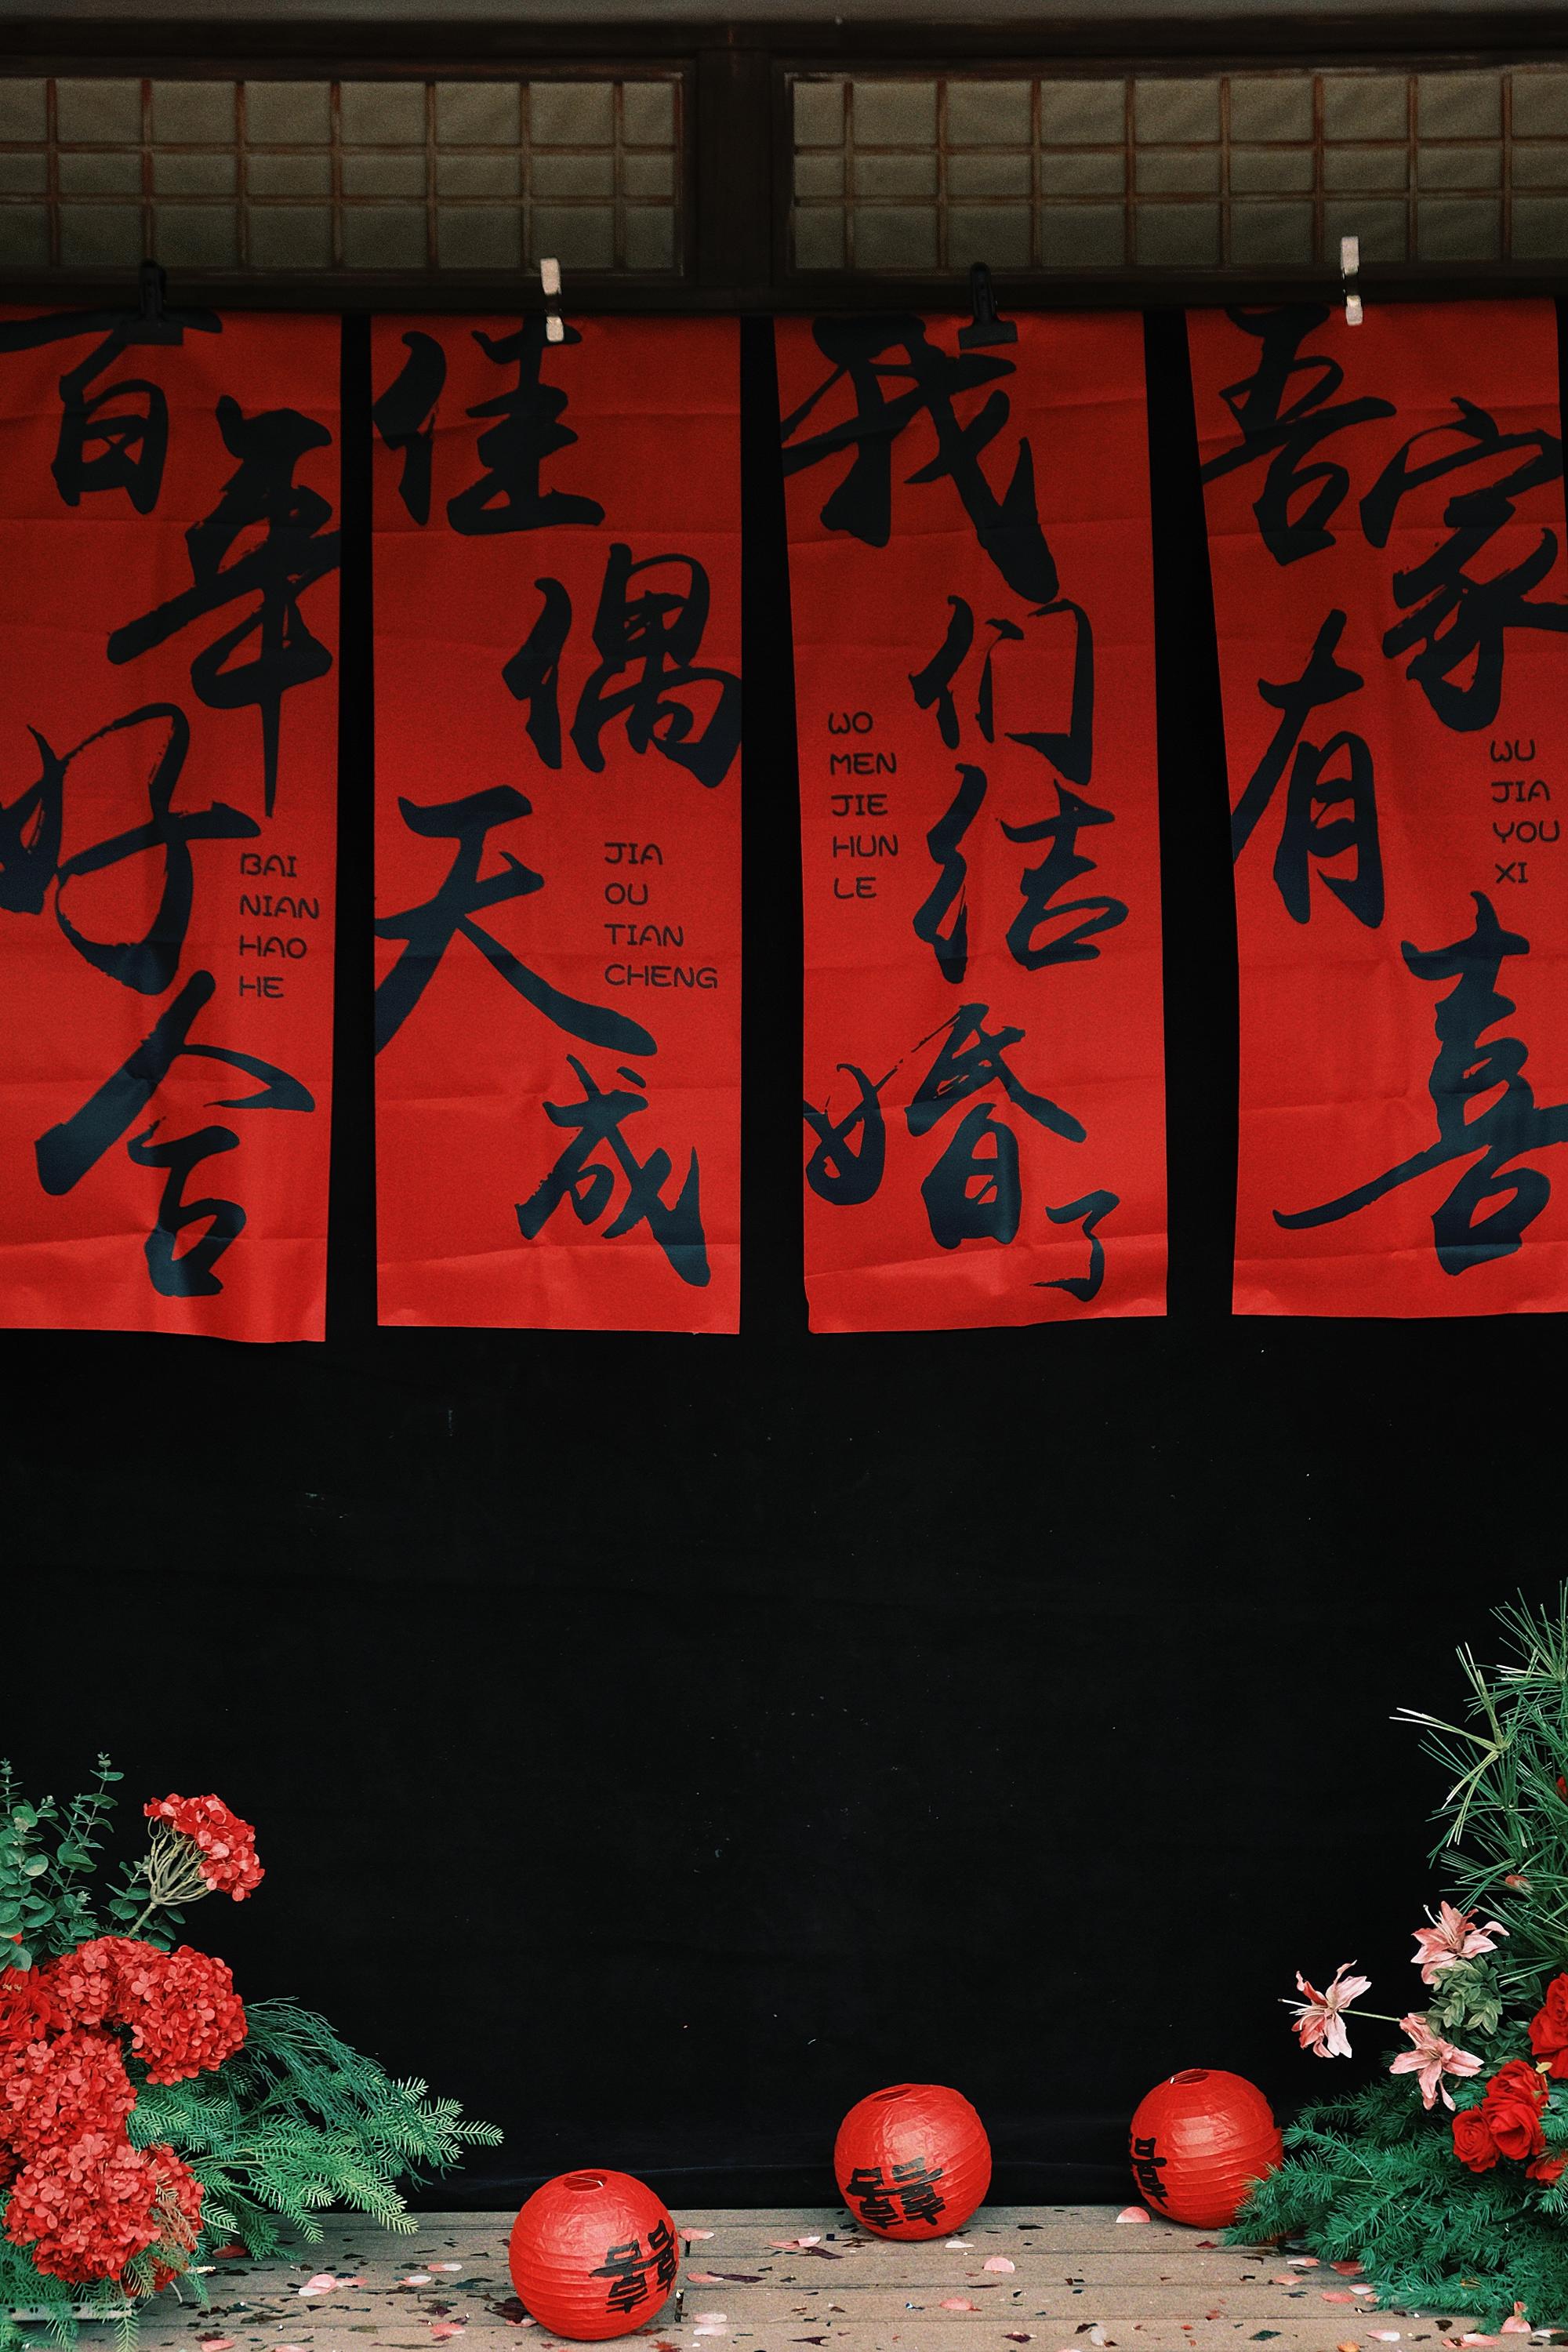 百年好合
BAI
NIAN
HAO
HE
佳偶天成
JIA
OU
TIAN
CHENG
我们结婚了
WO
MEN
JIE
HUN
LE
吾家有喜
WU
JIA
YOU
XI
囍
囍
囍